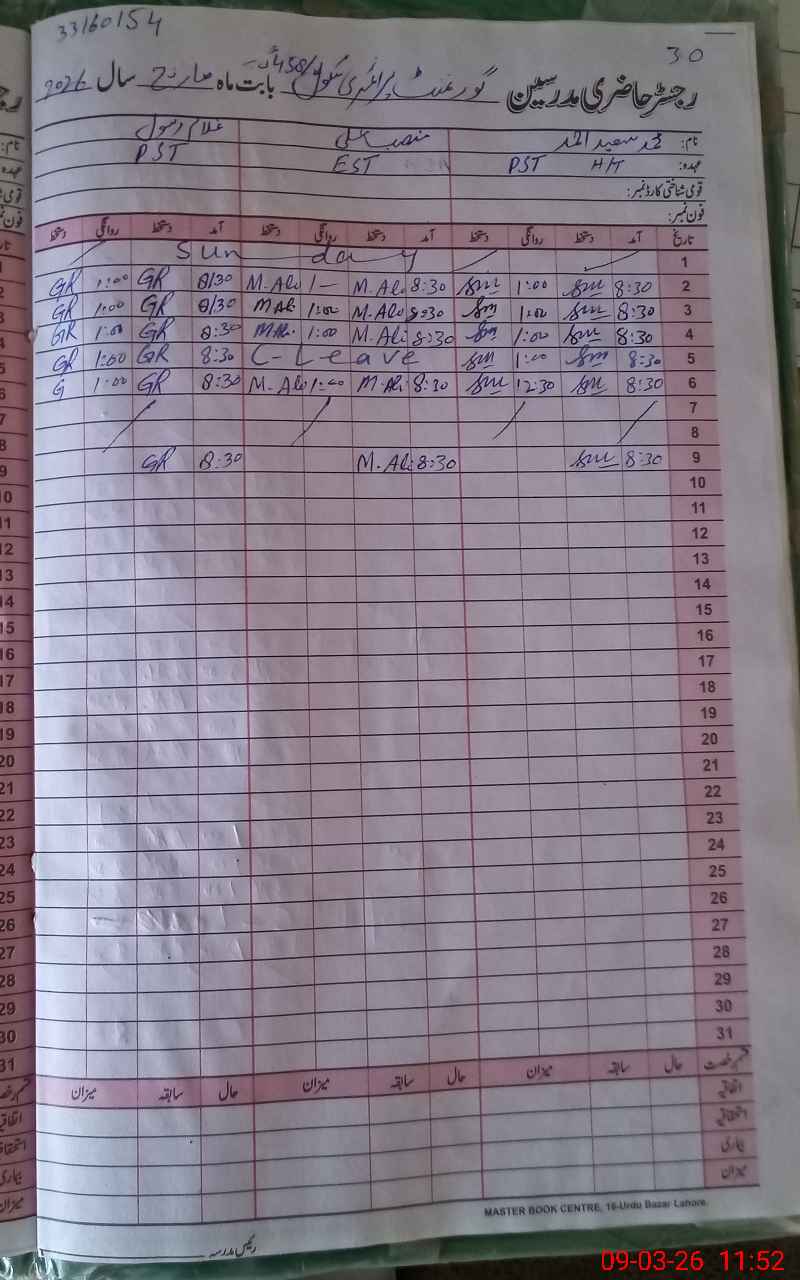 33160154
30
رجسٹر حاضری مدرسین گورنمنٹ پرائمری سکول 458 بابت ماہ مارچ سال 2026
نام: محمد سعید احمد منصب علی غلام رسول
عہدہ: H/T PST EST PST
قومی شناختی کارڈ نمبر:
فون نمبر:
تاریخ آمد دستخط روانگی دستخط آمد دستخط روانگی دستخط آمد دستخط روانگی دستخط
Sunday 1
GR 1:00 GR 8/30 M.Ali 1— M.Ali 8:30 Sm 1:00 Sm 8:30 2
GR 1:00 GR 8/30 M Ali 1:00 M.Ali 8:30 Sm 1:00 Sm 8:30 3
GR 1:00 GR 8:30 M.Ali 1:00 M.Ali 8:30 Sm 1:00 Sm 8:30 4
GR 1:00 GR 8:30 C-Leave Sm 1:00 Sm 8:30 5
G 1:00 GR 8:30 M.Ali 1:00 M.Ali 8:30 Sm 12:30 Sm 8:30 6
7
8
GR 8:30 M.Ali 8:30 Sm 8:30 9
10
11
12
13
14
15
16
17
18
19
20
21
22
23
24
25
26
27
28
29
30
31
قسم رخصت حال سابقہ میزان حال سابقہ میزان حال سابقہ میزان
اتفاقیہ
استحقاقیہ
بیماری
میزان
MASTER BOOK CENTRE, 16-Urdu Bazar Lahore.
رئیس مدرسہ
09-03-26 11:52